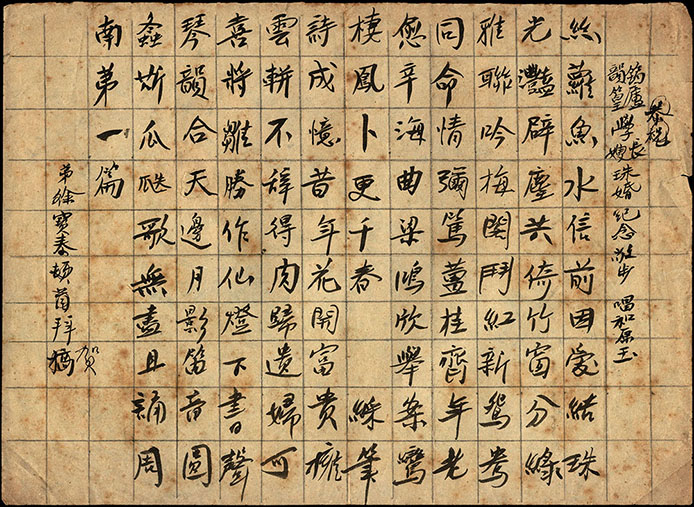 恭祝
筠廬學長
韻篁學嫂
珠婚紀念敬步 唱和原玉
絲蘿魚水信前因愛結珠
光灩辟塵共倚竹窗分綠
雅聯吟梅閣鬥紅新鴛鴦
同命情彌篤薑桂齊年老
愈辛海曲梁鴻欣舉案鸞
棲鳳卜更千春 綵筆
詩成憶昔年花開富貴擁
雲軿不辭得肉歸遺婦可
喜將雛勝作仙燈下書聲
琴韻合天邊月影笛音圓
螽斯瓜瓞歌無盡且誦周
南第一篇
弟徐寶泰頓首拜稿
賀